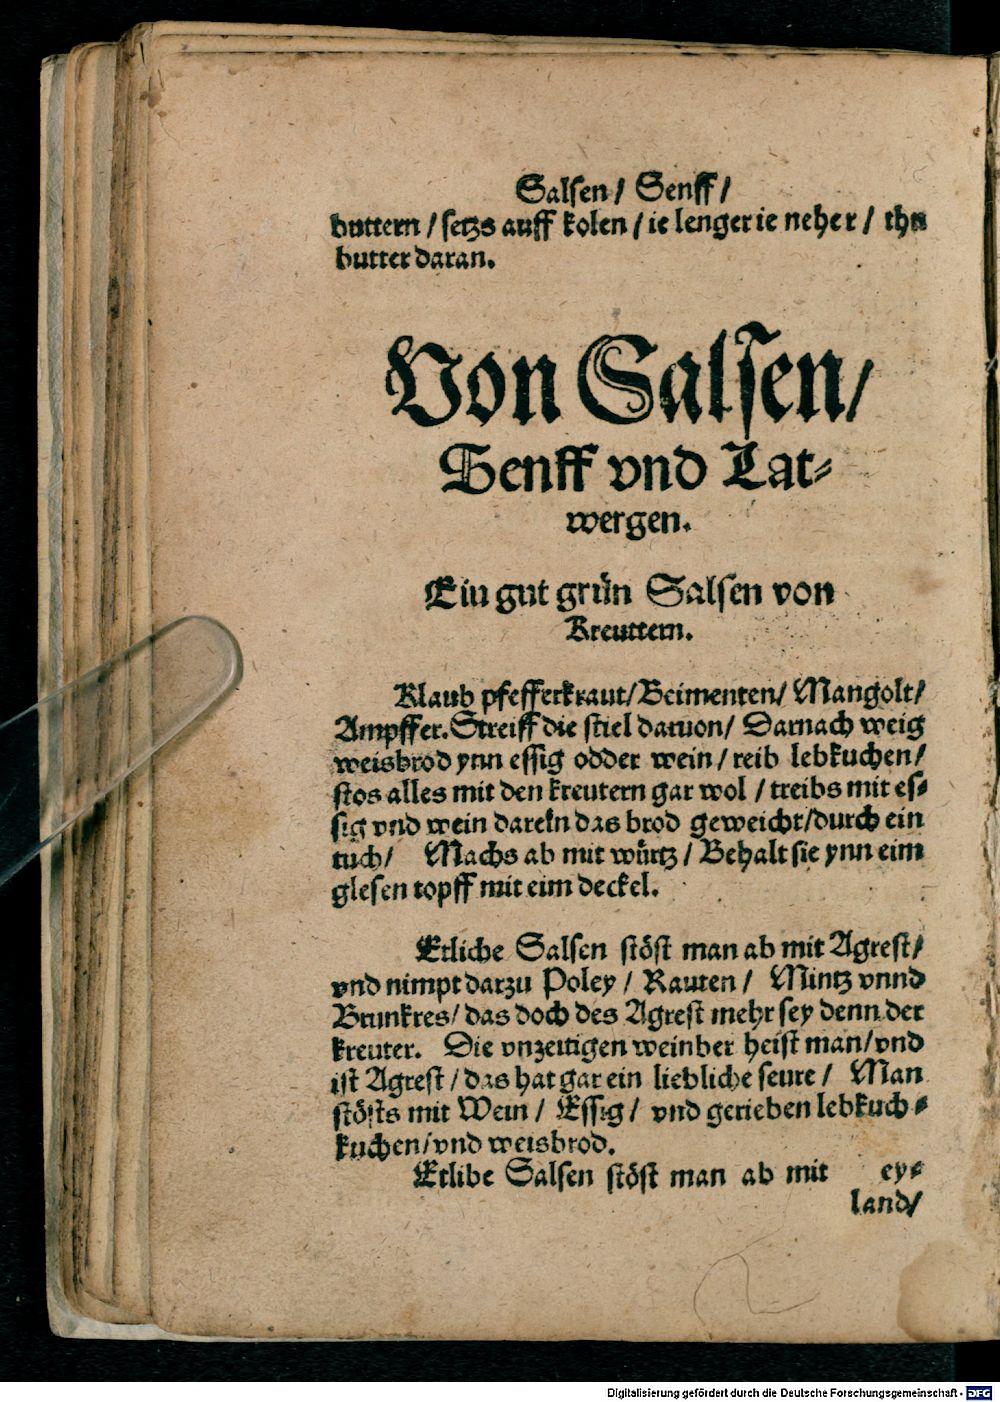 Salſen / Senff /
buttern / ſetzs auff kolen / ie lenger ie neher / thu
butter daran.
Von Salſen /
Senff vnd Lat⸗
wergen.
Ein gut grün Salſen von
Kreuttern.
Klaub pfefferkraut / Beimenten / Mangolt /
Ampffer. Streiff die ſtiel daruon / Darnach weig
weisbrod ynn eſſig odder wein / reib lebkuchen /
ſtos alles mit den kreutern gar wol / treibs mit eſ⸗
ſig vnd wein darein das brod geweicht / durch ein
tuch / Machs ab mit würtz / Behalt ſie ynn eim
gleſen topff mit eim deckel.
Etliche Salſen ſtöſt man ab mit Agreſt /
vnd nimpt darzu Poley / Rauten / Mintz vnnd
Brunkres / das doch des Agreſt mehr ſey denn der
kreuter. Die vnzeitigen weinber heiſt man / vnd
iſt Agreſt / das hat gar ein liebliche ſeure / Man
ſtöſts mit Wein / Eſſig / vnd gerieben lebkuch⸗
kuchen / vnd weisbrod.
Etlibe Salſen ſtöſt man ab mit ey⸗
land /
Digitalisierung gefördert durch die Deutsche Forschungsgemeinschaft - DFG